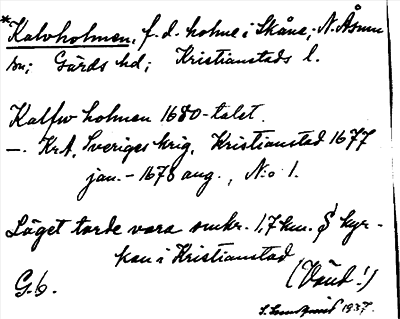 *Kalvholmen, f.d. holme i Skåne, N. Åsum
sn; Gärds hd; Kristianstads l.
Kalfw holmen 1680-talet.
—. KrA, Sveriges krig, Kristianstad 1677
jan. - 1678 aug., N:o 1.
Läget torde vara omkr. 1,7 km. S kyr-
kan i Kristianstad
(Vänd!)
G.6.
1937.